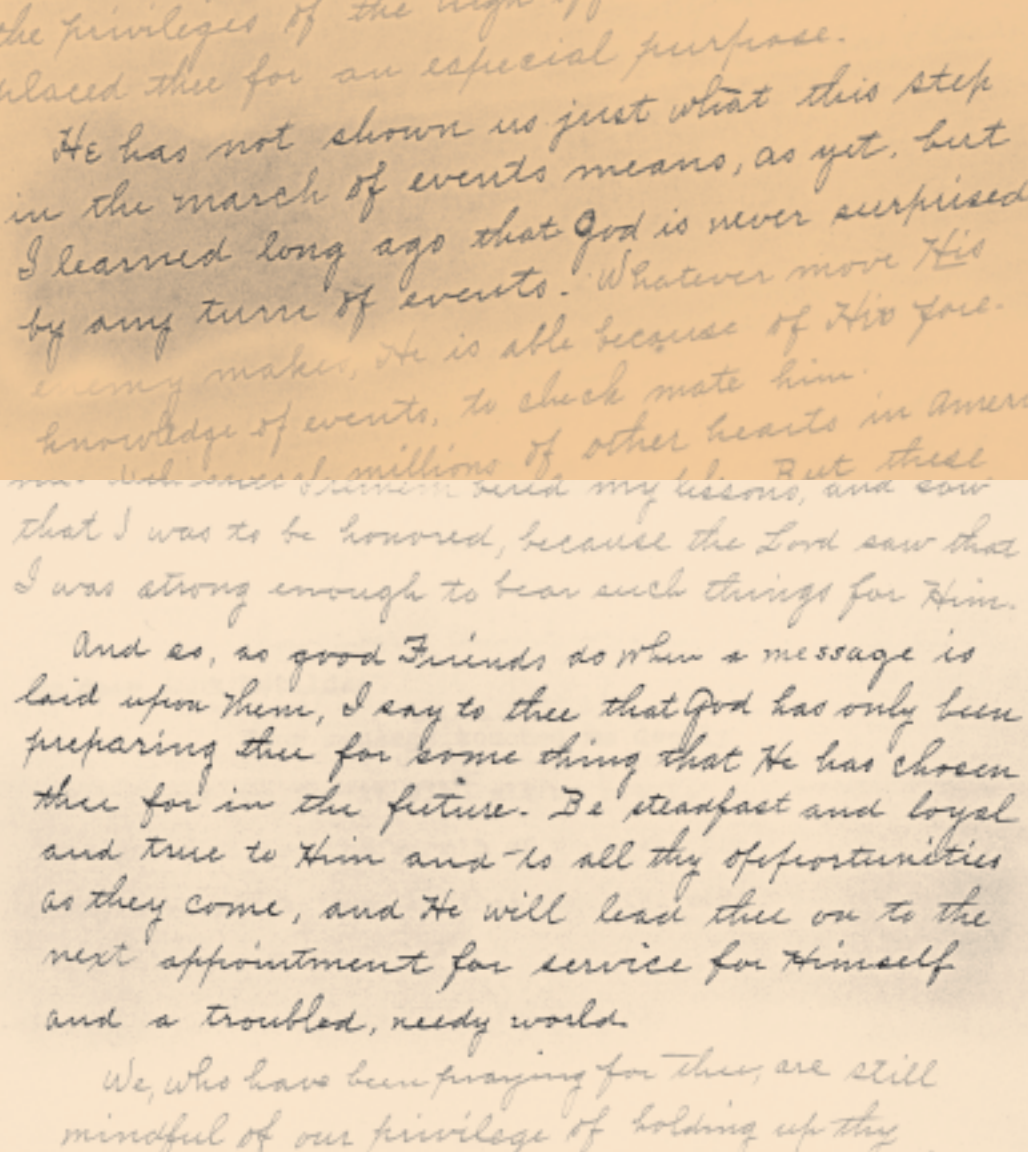 the privileges of the high
placed thee for an especial purpose.
He has not shown us just what this step
in the march of events means, as yet, but
I learned long ago that God is never surprised
by any turn of events. Whatever move His
enemy makes, He is able because of His fore-
knowledge of events, to check mate him.
millions of other hearts in Ameri
But these
my lessons, and saw
that I was to be honored, because the Lord saw that
I was strong enough to bear such things for Him.
And so, as good Friends do when a message is
laid upon them, I say to thee that God has only been
preparing thee for some thing that He has chosen
thee for in the future. Be steadfast and loyal
and true to Him and to all thy opportunities
as they come, and He will lead thee on to the
next appointment for service for Himself
and a troubled, needy world.
We, who have been praying for thee, are still
mindful of our privilege of holding up thy